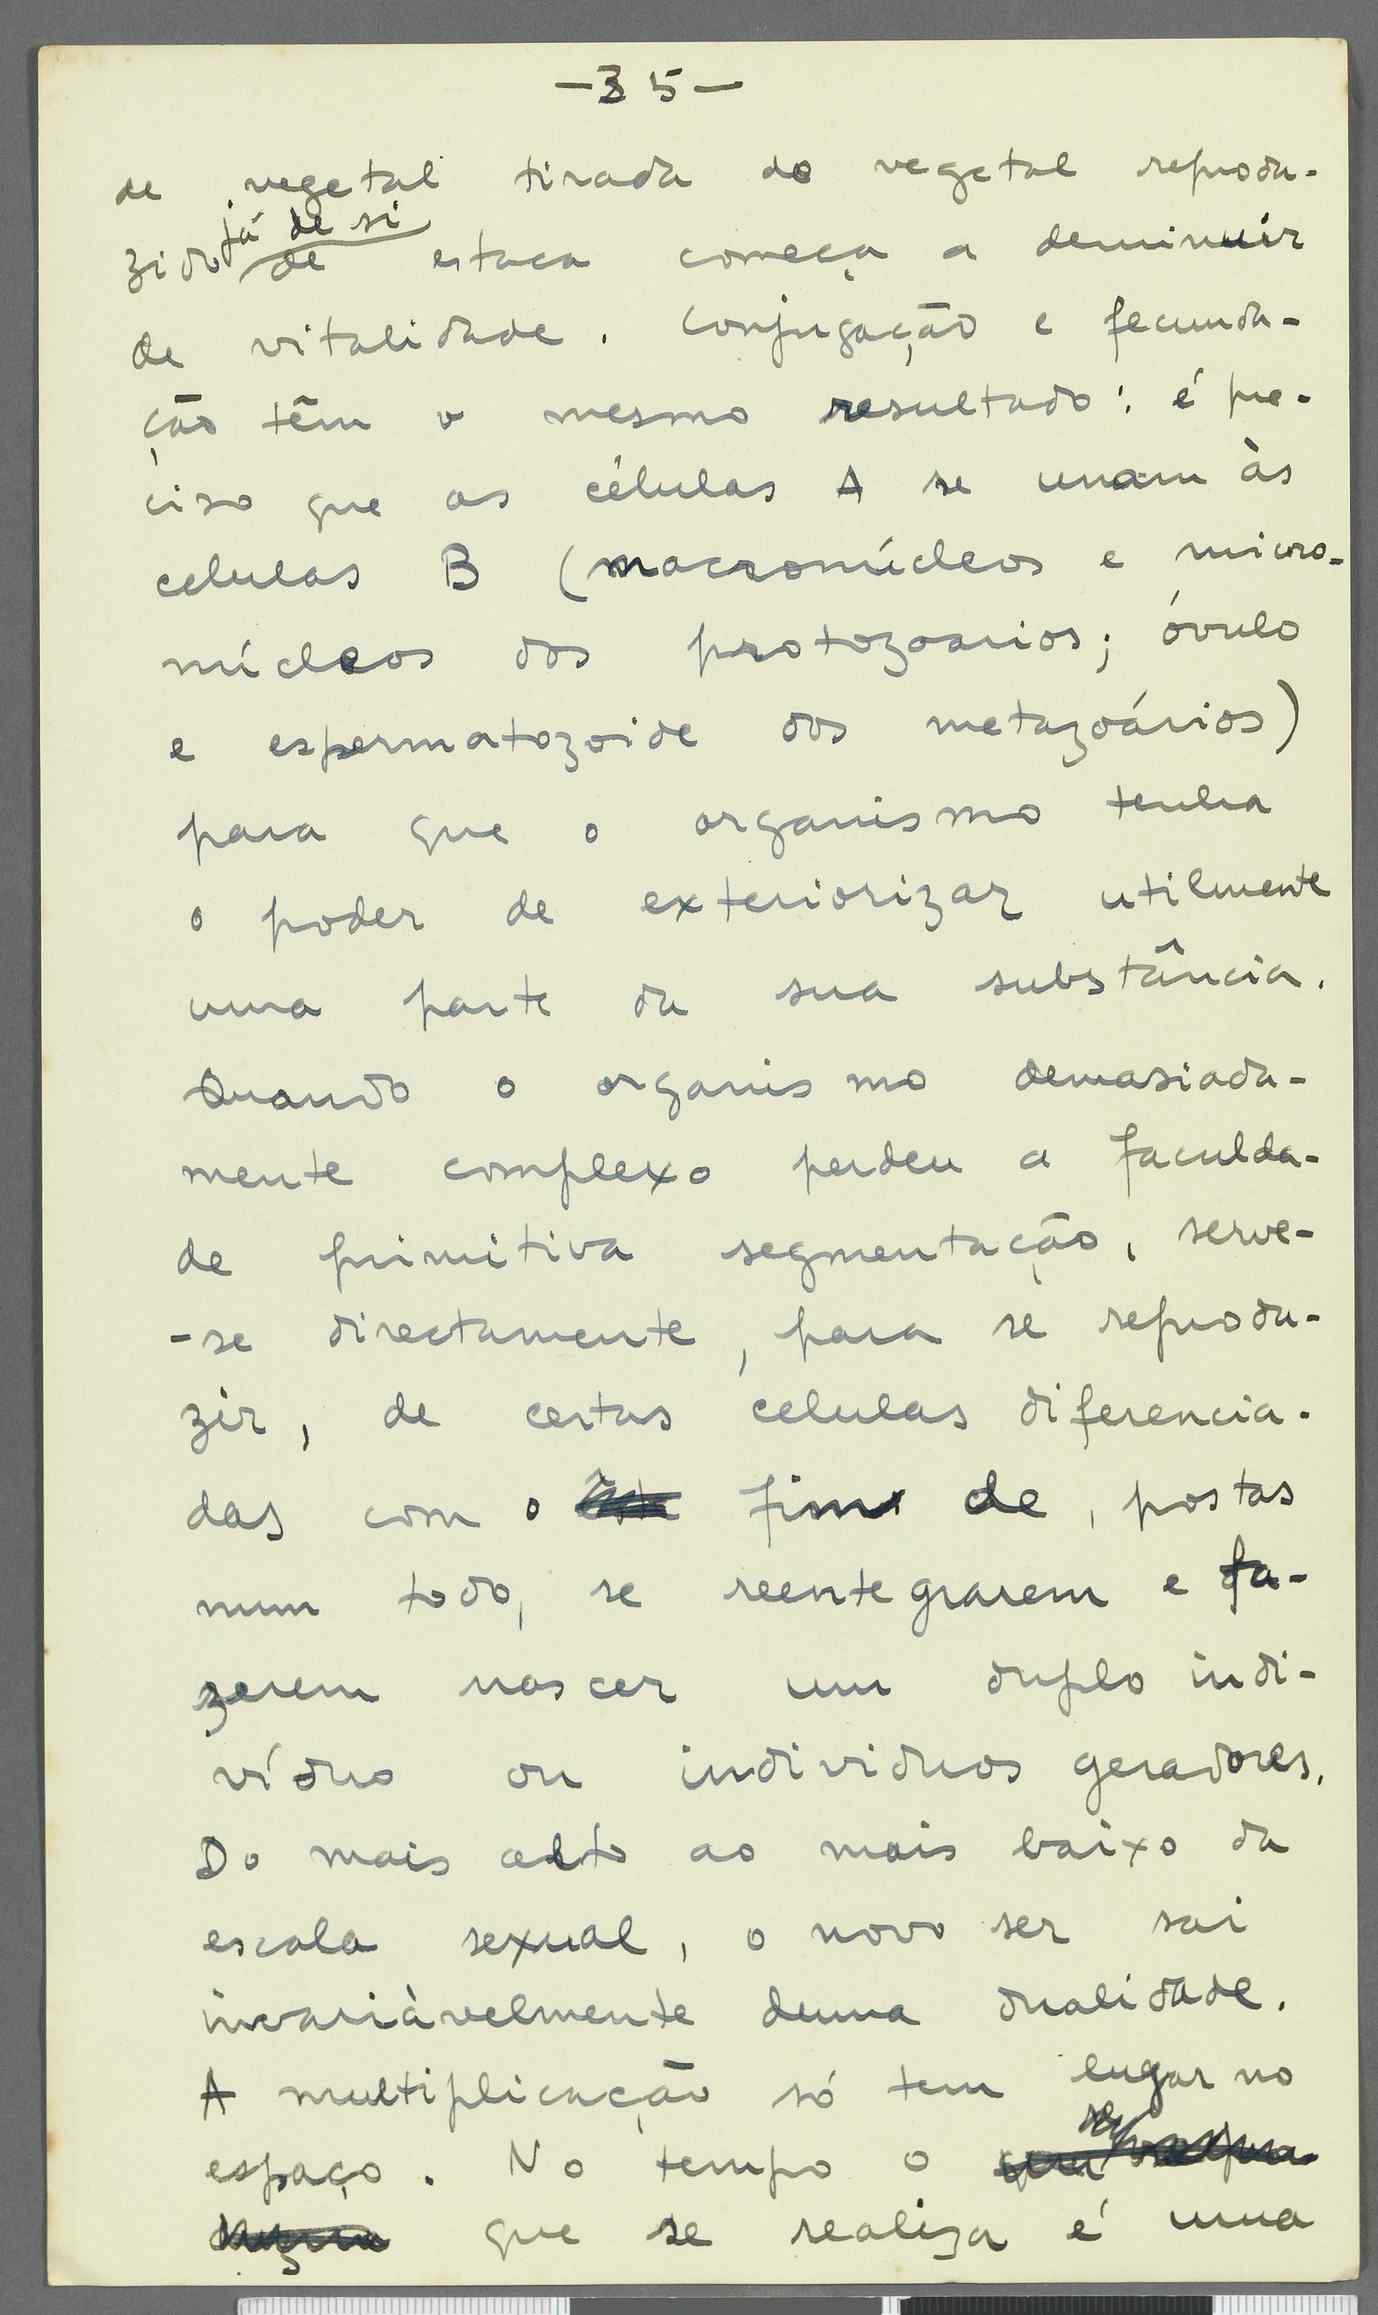 -35-
de vegetal tirada do vegetal reprodu-
já de si
zido de estaca começa a deminuir
de vitalidade. Conjugação e fecunda-
ção têm o mesmo resultado: é pre-
ciso que as células A se unam às
celulas B (macronúcleos e micro-
núcleos dos protozoarios; óvulo
e espermatozoide dos metazoários)
para que o organismo tenha
o poder de exteriorizar utilmente
uma parte da sua substância.
Quando o organismo demasiada-
mente complexo perdeu a faculda-
de primitiva segmentação, serve-
-se directamente, para se reprodu-
zir, de certas celulas diferencia-
das com o fim de, postas
num todo, se reentegrarem e fa-
zerem nascer um duplo indi-
víduo ou individuos geradores.
Do mais alto ao mais baixo da
escala sexual, o novo ser sai
invariàvelmente duma dualidade.
A multiplicação só tem lugar no
espaço. No tempo o
que se realiza é uma